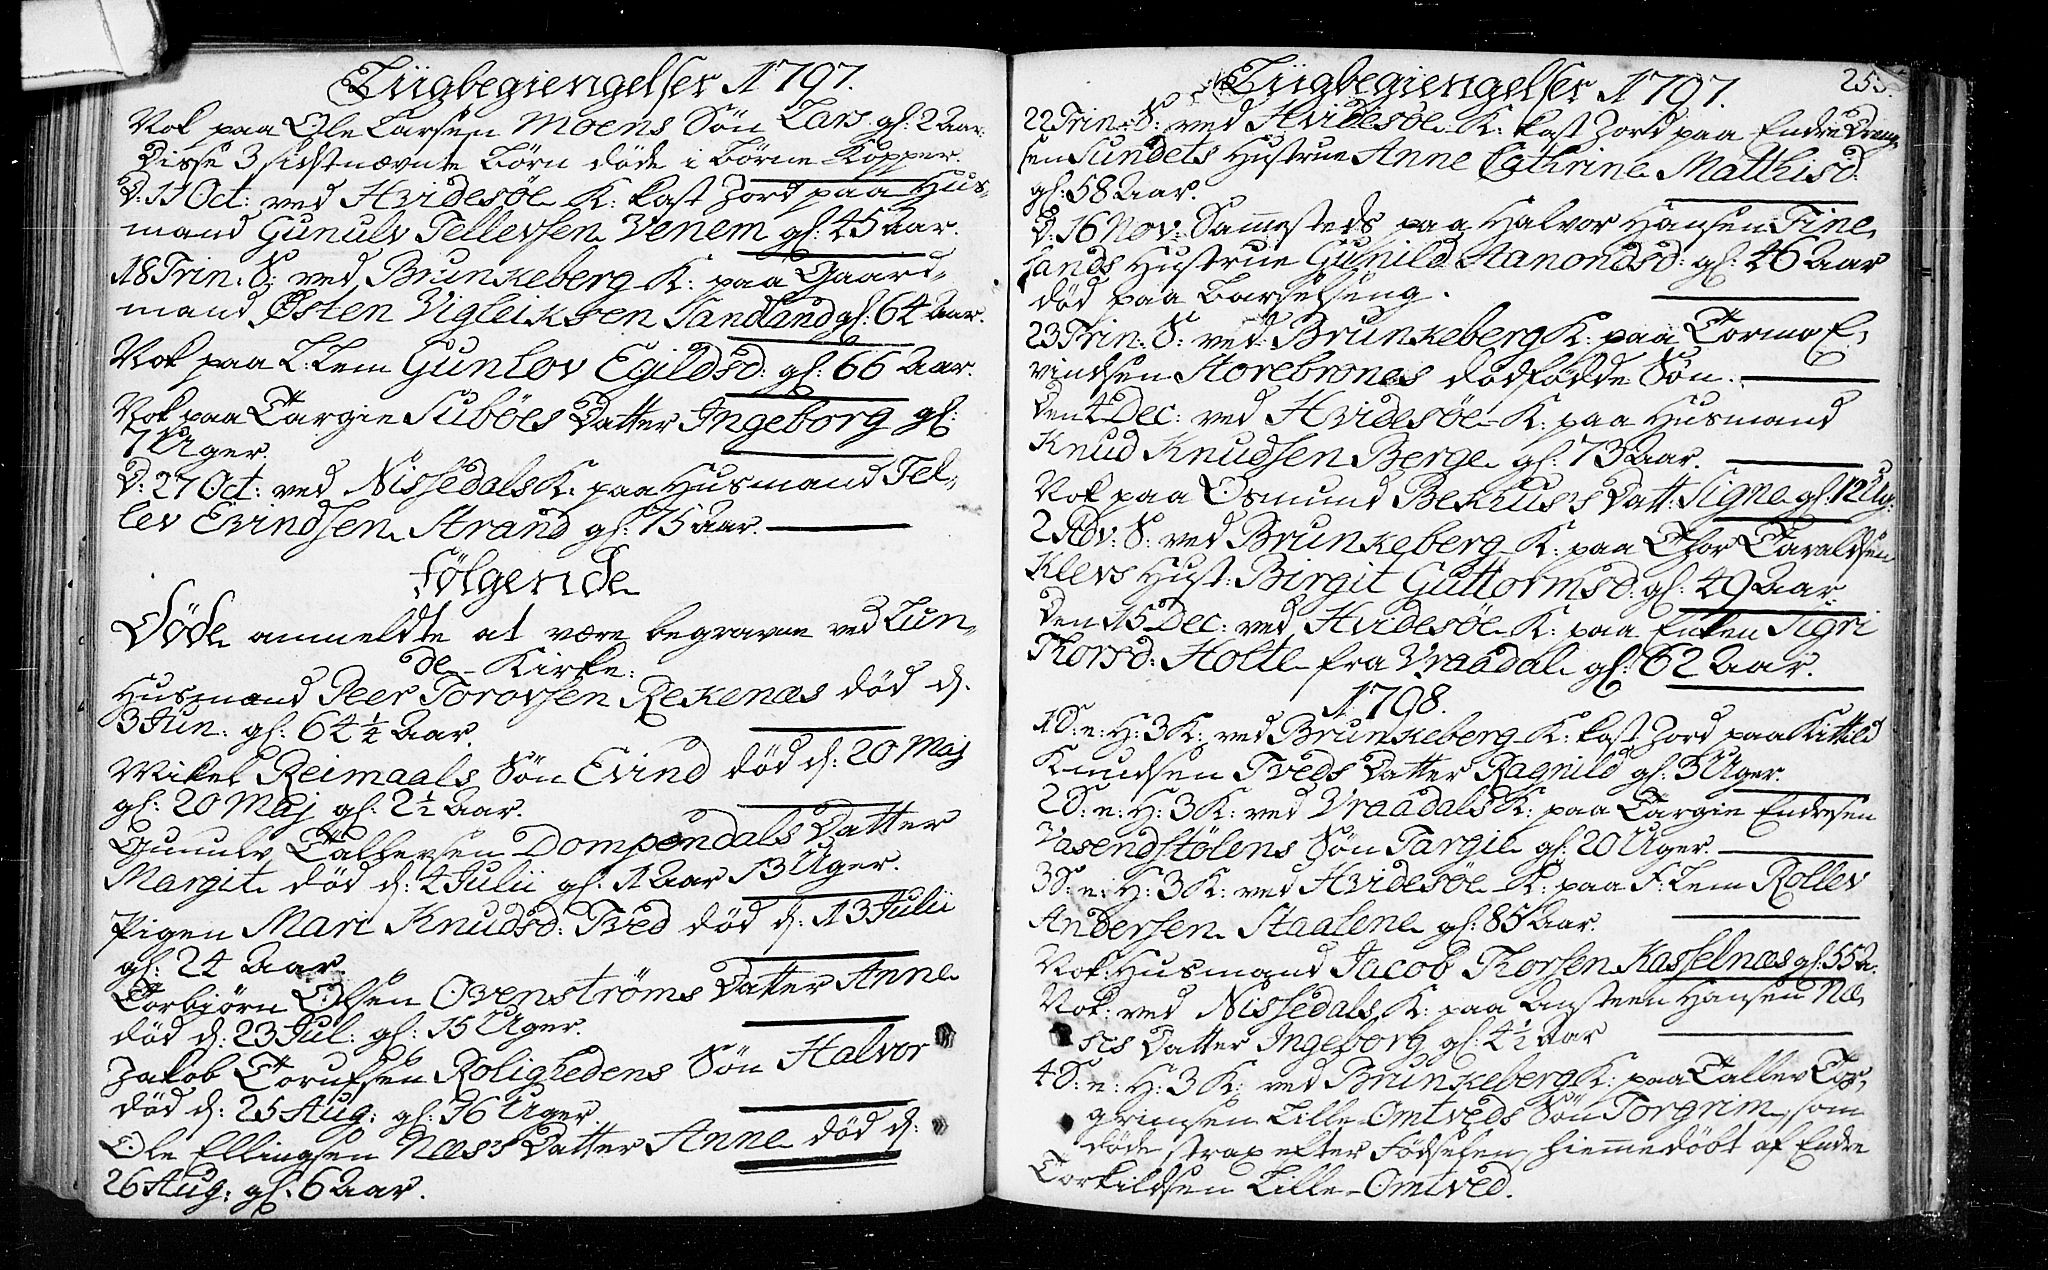 Liigbegiengelser 1797.
Nok paa Ole Larsen Moens Søn Lars gl: 2 Aar.
Disse 3 sidstnævnte Børn døde i Børne-Kopper.
D: 11 Oct: ved Hvidesøe K: kast Jord paa Hus-
mand Gunulv Tellevsen Venem gl: 45 Aar.
18 Trin: S: ved Brunkeberg K: paa Gaard-
mand Østen Vigleiksen Sandland gl: 64 Aar.
Nok paa L: Lem Gunlov Egildsd: gl: 66 Aar.
Nok paa Targie Subøes Datter Ingeborg gl:
7 Uger.
D: 27 Oct: ved Nissedals K: paa Husmand Tel-
lev Evindsen Strand gl: 75 Aar.
Følgende
Døde anmeldte at være begravne ved Lun-
de-Kirke:
Husmand Peer Torovsen Rekenæs død d.
3 Jun: gl: 64 1/4 Aar.
Mikel Reimaals Søn Evind død d: 20 Maj
gl: 20 Maj gl: 2 1/2 Aar.
Gunulv Tallevsen Dompendals Datter
Margit død d: 4 Julii gl: 1 Aar 13 Uger.
Pigen Mari Knudsd: Tved død d: 13 Julii
gl: 24 Aar.
Torbjørn Olsen Ovenstrøms Datter Anne
død d: 23 Jul: gl: 15 Uger.
Jakob Torufsen Rolighedens Søn Halvor
død d: 25 Aug: gl: 16 Uger.
Ole Ellingsen Næss Datter Anne død d:
26 Aug: gl: 6 Aar.
Liigbegiengelser 1797.
22 Trin: S: ved Hvidesøe K: kast Jord paa Endre
sen Sundets Hustrue Anne Cathrine Mathisd:
gl: 58 Aar.
D: 16 Nov: Sammesteds paa Halvor Hansen Fine-
lands Hustrue Gunild Aanondsd: gl: 46 Aar
død paa Barselseng.
23 Trin: S: ved Brunkeberg K: paa Tormo E-
vindsen Storebrones dødfødde Søn.
Den 4 Dec: ved Hvidesøe K: paa Husmand
Knud Knudsen Berge gl: 73 Aar.
Nok paa Osmund Bekhus's Datt: Signe gl: 12 Ug:
2 Adv: S: ved Brunkeberg K: paa Thor Taraldsen
Klevs Hust: Birgit Guttormsd: gl: 49 Aar.
Den 15 Dec: ved Hvidesøe K: paa Enken Sigri
Thorsd: Holte fra Vraadal gl: 62 Aar.
1798.
1 S: e: H: 3 K: ved Brunkeberg K: kast Jord paa Kittild
Knudsen Tveds Datter Ragnild gl: 3 Uger.
2 S: e: H: 3 K: ved Vraadals K: paa Targie Endresen
Vasendstølens Søn Targie gl: 20 Uger.
3 S: e: H: 3 K: ved Hvidesøe K: paa F: Lem Rollev
Andersen Staalene gl: 85 Aar.
Nok: Husmand Jacob Thorsen Kasselnæs gl: 55 A:
Nok: ved Nissedals K: paa Ansteen Hansen Næ-
ses Datter Ingeborg gl: 4 1/2 Aar
4 S: e: H: 3 K: ved Brunkeberg K: paa Tallev Tor-
grimsen Lille-Omtveds Søn Torgrim, som
døde strax efter Fødselen, hiemmedøbt af Endre
Torkildsen Lille-Omtved.